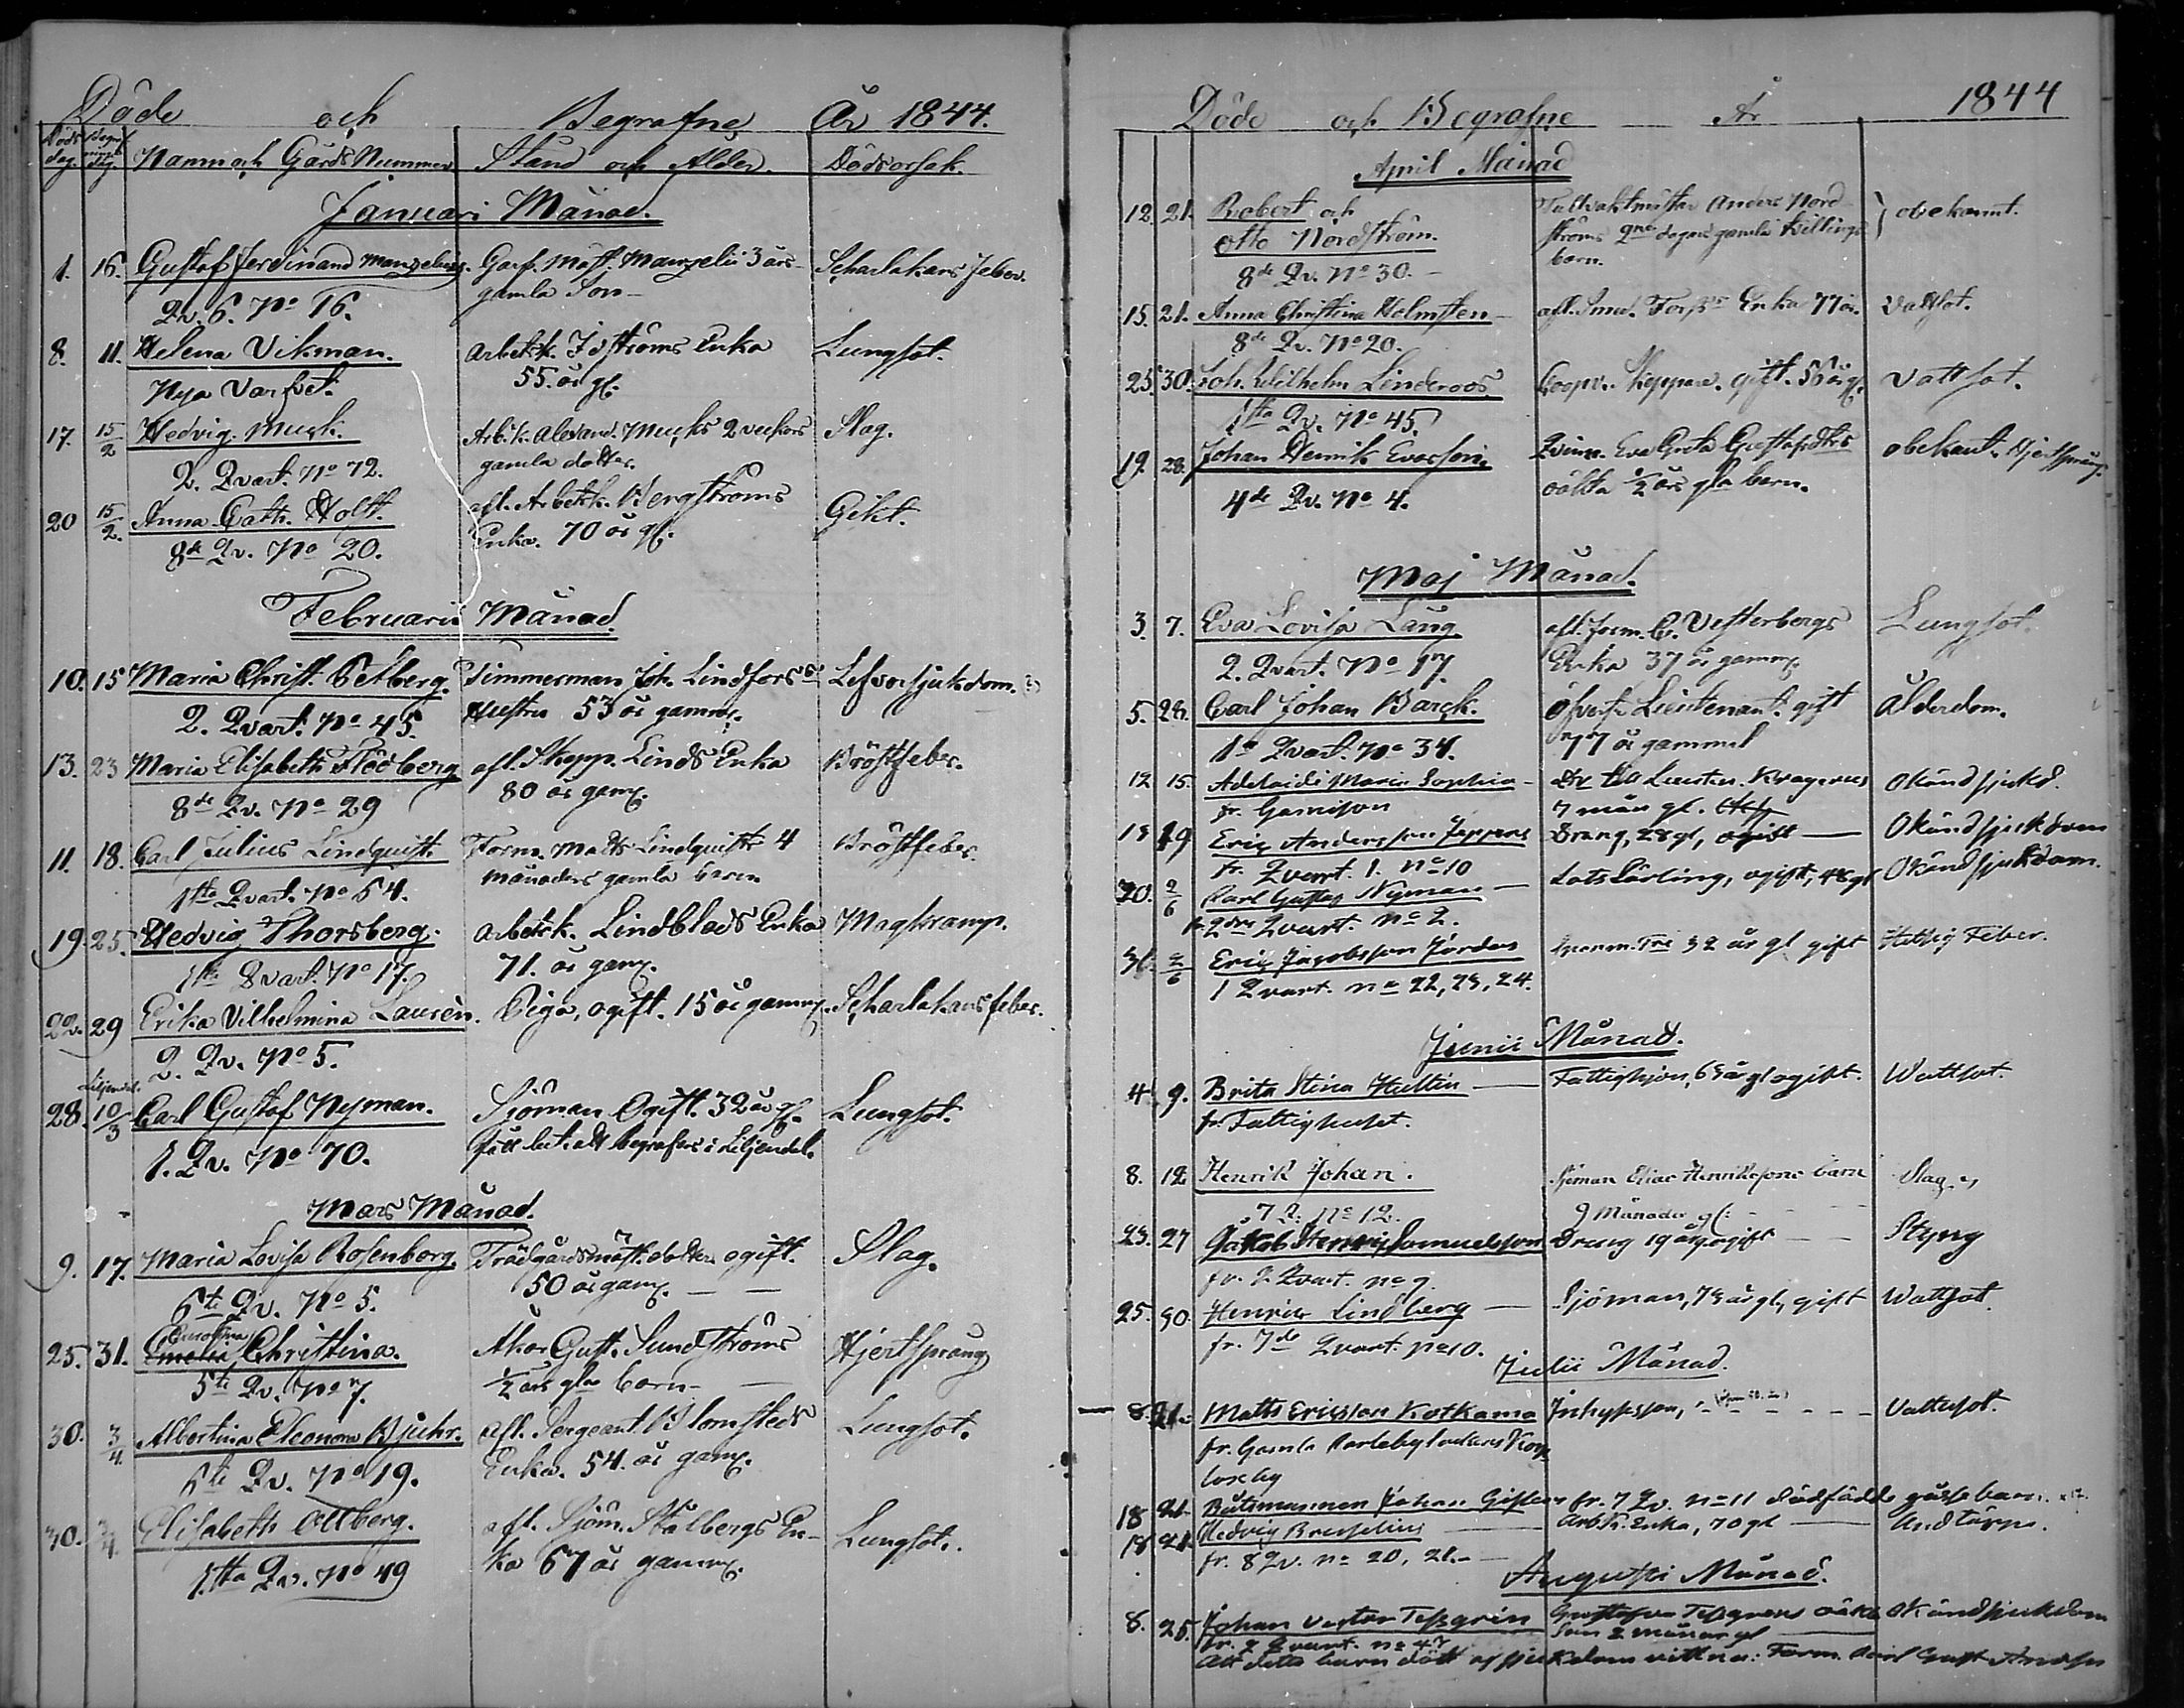 Döde och Begrafne År 1844.
Döds dag. Begrafnings dag. Namn och Gårds Nummer. Stånd och Ålder. Dödsorsak.
Januari Månad.
1. 16. Gustaf Ferdinand Manzelius. Garf. Mäst. Manzelii 3 års Scharlakans Feber.
Qv. 6. No 16. gamla Son
8. 11. Helena Vikman. Arbetsk. Enka Lungsot.
Nya Varfvet. 55. år gl.
17. 15/2 Hedvig Muck. Arb.k. Alexand. Mucks 2 veckors Slag.
2. Qvart. No 72. gamla dotter.
20 15/2. Anna Cath. Holt. afl. Arbetsk. Bergströms Gikt.
8de Qv. No 20. Enka. 70 år gl.
Februarii Månad.
10. 15 Maria Christ. Timmerman Joh. Lindfors's Lefversjukdom.
2. Qvart. No 45. Hustru 53 år gamml.
13. 23 Maria Elisabeth Flodberg afl. Skepp. Linds Enka Bröstfeber.
8de Qv. No 29 80 år gaml.
11. 18. Carl Julius Lindquist. Form. Matts Lindquists 4 Bröstfeber.
1sta Qvart. No 54. månaders gamla barn
19. 25. Hedvig Thorsberg. Arbetsk. Lindblads Enka Magkramp.
1sta Qvart. No 17. 71. år gaml.
22. 29 Erika Vilhelmina Laurèn. Piga, ogift. 15 år gamml. Scharlakansfeber.
2. Qv. No 5.
Liljendal.
28. 10/3 Carl Gustaf Nyman. Sjöman Ogift. 32 år gl. Lungsot.
1. Qv. No 70. fått bet. att begrafvas i Liljendal.
Mars Månad.
9. 17. Maria Lovisa Rosenborg. Trädgårdsmäst. dotter ogift. Slag.
6te Qv. No 5. 50 år gaml.
Carolina
25. 31. Emelie Christina. Åkar Gust. Sundströms Hjertsprång
5te Qv. No 7. 1/2 års gla barn
30. 3/4. Albertina Eleonora Bjuhr. afl. Sergeant Blomsteds Lungsot.
6te Qv. No 19. Enka. 54. år gaml.
30. 3/4. Elisabeth Ollberg. afl. Sjöm. Stålbergs En- Lungsot.
1sta Qv. No 49 ka 67 år gamml.
Döde och Begrafne År 1844
April Månad
12. 21. Robert och Tullvaktmästar Anders Nord- obekannt.
Otto Nordström. ströms 2ne dagars gamla tvillings
8de Qv. No 30. barn.
15. 21. Anna Christina Holmsten afl. Smed. Enka 77 år. Vattsot.
8de Qv. No 20.
25. 30. Joh. Wilhelm Linderoos. Coopv. Skeppare. gift. 56 år gl. Vattsot.
1sta Qv. No 45.
19. 28. Johan Henrik Evasson. Qvinn. Eva Greta Gustafsdtrs obekant. Hjertsprång.
4de Qv. No 4. oäkta 1/2 års gla barn.
Maj Månad.
3. 7. Eva Lovisa Lang afl. Form. C. Vesterbergs Lungsot.
2. Qvart. No 17. Enka 37 år gamml.
5. 28. Carl Johan Barck. Öfverste Lieutenant. gift Ålderdom.
1a Qvart. No 34. 77 år gammal
12 15. Adelaide Maria Sophia Dtr till Okänd sjukd.
fr. Garnison 7 mån gl.
19 Eric Andersson Jeppens Dräng, 28 gl, ogift Okänd sjukdom
fr. Qvart. 1. No 10
20. 2/6 Carl Gustaf Nyman Lots Lärling, ogift, 48 gl Okänd sjukdom.
fr. 2dra Qvart. No 2.
2/6 Eric Jacobsson Jordas 32 år gl gift Hetsig Feber.
1 Qvart. No 22, 23, 24.
Junii Månad.
4. 9. Brita Stina Hultin Fattighjon, 63 år gl ogift. Wattsot.
fr. Fattighuset.
8. 12. Henrik Johan. Sjöman Elias Henrikssons barn Slag.
7 Q. No 12. 9 Månader gl:
23. 27 Jakob Henrik Samuelsson Dräng 19 år gl ogift Styng
fr. 2 Qvart. No 9.
25. 30. Henrik Lindberg Sjöman, 73 år gl, gift Wattsot
fr. 7de Qvart. No 10.
Julii Månad.
8. 21. Matts Ericsson Kotkamo Inhysson, Vattusot.
fr. Gamla Carleby
18 21. Båtsmannen Johan fr. 7 Qv. No 11 dödfödde gossebarn.
18 21. Hedvig Arb.k. Enka, 70 gl Andtäppa.
fr. 8 Qv. No 20, 21.
Augusti Månad.
8. 25. Johan Victor Tessgrén Gustafva Tessgrens oäkta Okänd sjukdom
fr. 2 Qvart. No 47 Son 2 månar gl
Att detta barn dödt af sjukdom vittna: Form. Carl Gust.